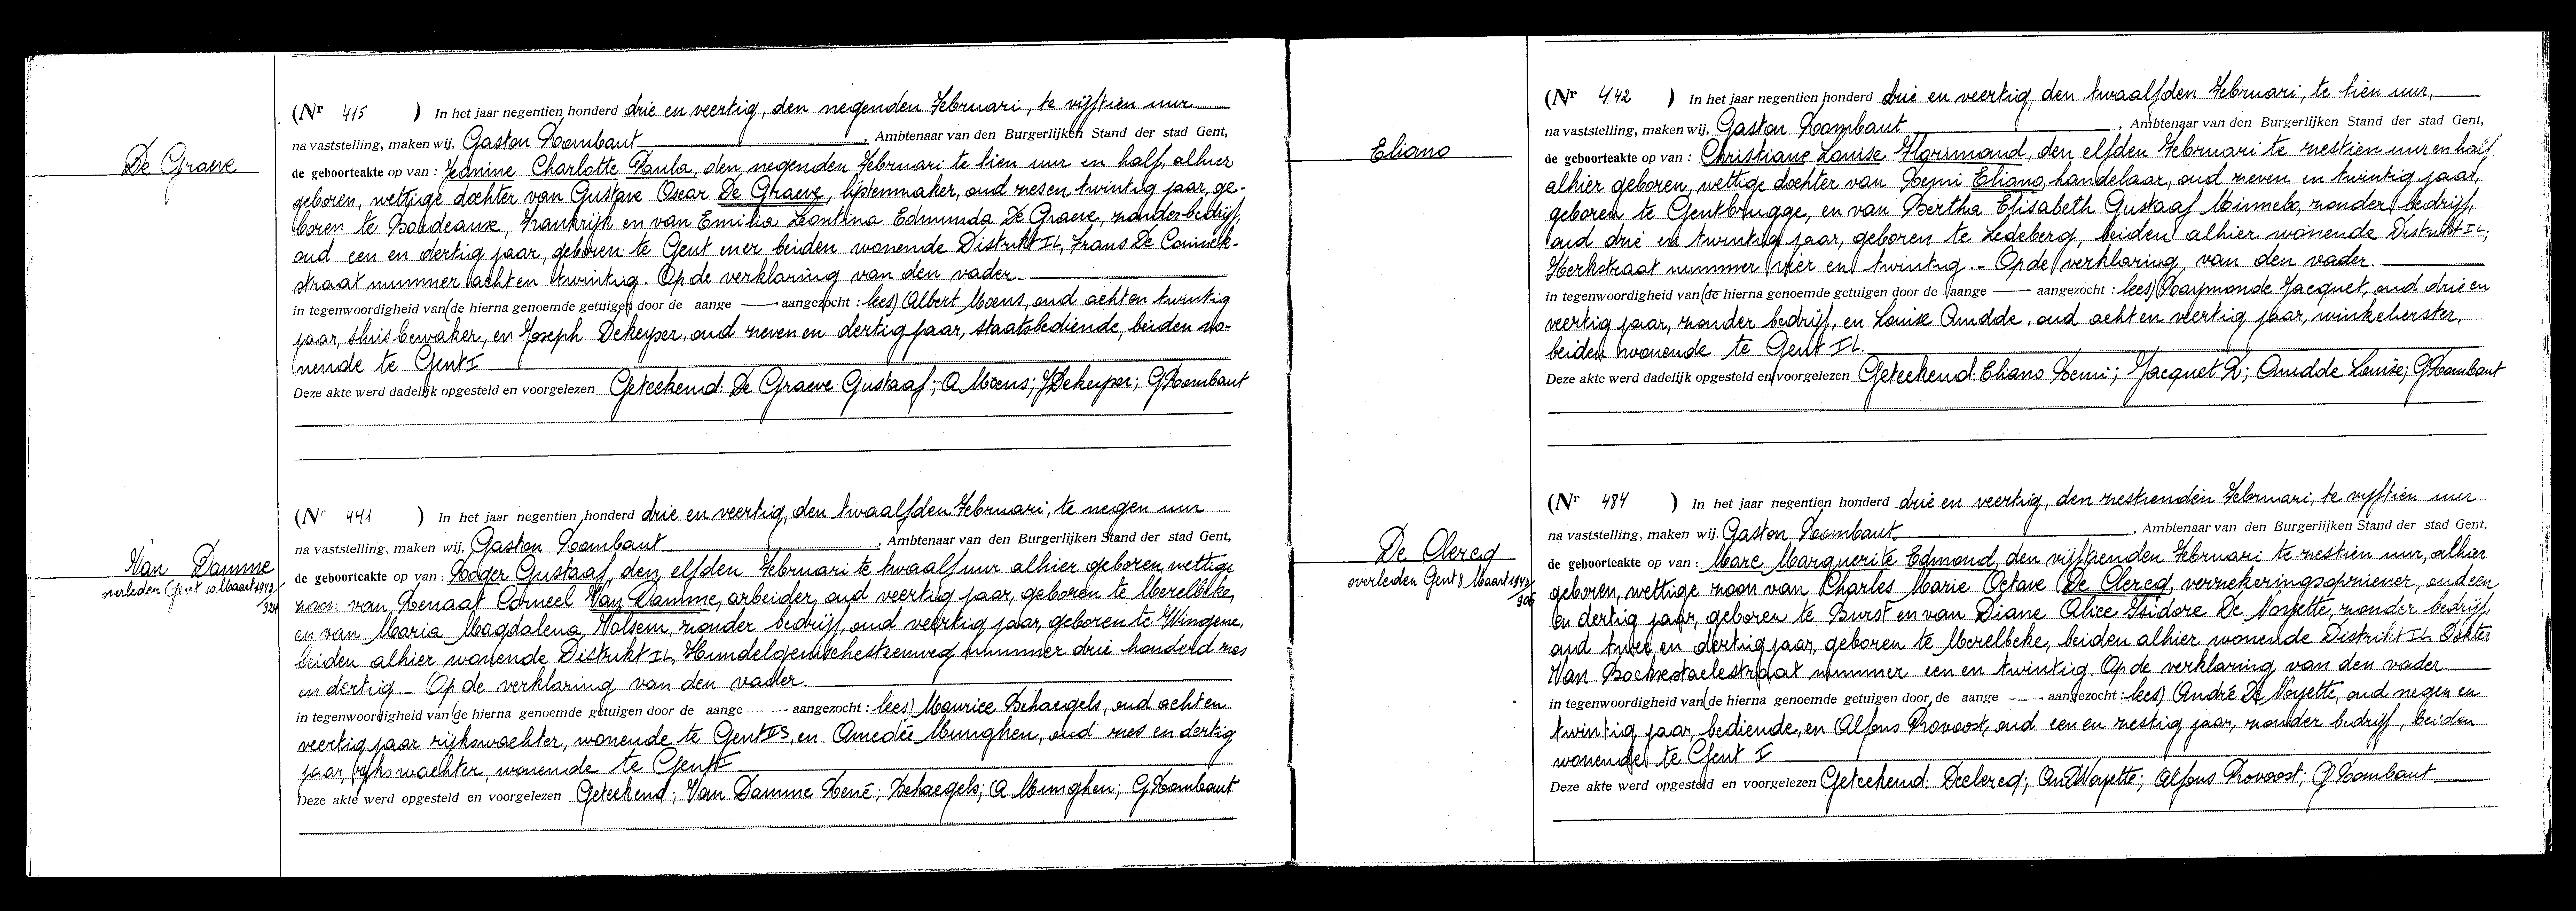 De Graeve
(Nr 415 ) In het jaar negentien honderd drie en veertig, den negenden Februari, te vijftien uur
na vaststelling, maken wij, Gaston Rombaut, Ambtenaar van den Burgerlijken Stand der stad Gent,
de geboorteakte op van : Jeanine Charlotte Paula, den negenden Februari te tien uur en half, alhier
geboren, wettige dochter van Gustave Oscar De Graeve, lijstenmaker, oud zes en twintig jaar, ge-
boren te Bordeaux, Frankrijk en van Emilia Leontina Edmunda De Graeve, zonder bedrijf,
oud een en dertig jaar, geboren te Gent en er beiden wonende Distrikt II, Frans De Coninck-
straat nummer acht en twintig. Op de verklaring van den vader
in tegenwoordigheid van (de hierna genoemde getuigen door de aange — aangezocht : lees) Albert Moens, oud acht en twintig
jaar, sluisbewaker, en Joseph Dekeyser, oud zeven en dertig jaar, staatsbediende, beiden wo-
nende te Gent I
Deze akte werd dadelijk opgesteld en voorgelezen Geteekend: De Graeve Gustaaf; A Moens; J Dekeyser; G Rombaut
Van Damme
overleden Gent 10 Maart 1943/
(Nr 441 ) In het jaar negentien honderd drie en veertig, den twaalfden Februari, te negen uur
na vaststelling, maken wij, Gaston Rombaut, Ambtenaar van den Burgerlijken Stand der stad Gent,
de geboorteakte op van : Roger Gustaaf, den elfden Februari te twaalf uur alhier geboren, wettige
zoon van Renaat Corneel Van Damme, arbeider, oud veertig jaar, geboren te Merelbeke,
en van Maria Magdalena Wolsem, zonder bedrijf, oud veertig jaar, geboren te Wingene,
beiden alhier wonende Distrikt II, Hundelgemschesteenweg nummer drie honderd zes
en dertig - Op de verklaring van den vader.
in tegenwoordigheid van (de hierna genoemde getuigen door de aange — aangezocht : lees) Maurice Behaegels, oud acht en
veertig jaar rijkswachter, wonende te Gent, en Amedée Munghen, oud zes en dertig
jaar, rijkswachter, wonende te Gent
Deze akte werd opgesteld en voorgelezen Geteekend: Van Damme René; Behaegels; A Munghen; G Rombaut
Eliano
(Nr 442 ) In het jaar negentien honderd drie en veertig, den twaalfden Februari, te tien uur,
na vaststelling, maken wij, Gaston Rombaut, Ambtenaar van den Burgerlijken Stand der stad Gent,
de geboorteakte op van : Christiane Louise Florimond, den elfden Februari te zestien uur en half.
alhier geboren, wettige dochter van Remi Eliano, handelaar, oud zeven en twintig jaar,
geboren te Gentbrugge, en van Bertha Elisabeth Gustaaf Minnebo, zonder bedrijf,
oud drie en twintig jaar, geboren te Ledeberg, beiden alhier wonende Distrikt II,
Kerkstraat nummer vier en twintig. - Op de verklaring, van den vader
in tegenwoordigheid van (de hierna genoemde getuigen door de aange — aangezocht : lees) Raymonde Jacquet, oud drie en
veertig jaar, zonder bedrijf, en Louise Oudde, oud acht en veertig jaar, winkelierster,
beiden wonende te Gent II.
Deze akte werd dadelijk opgesteld en voorgelezen Geteekend: Eliano Remi; Jacquet R; Oudde Louise; G Rombaut
De Clercq
overleden Gent 8 Maart 1943/
906
(Nr 484 ) In het jaar negentien honderd drie en veertig, den zestienden Februari, te vijftien uur
na vaststelling, maken wij. Gaston Rombaut, Ambtenaar van den Burgerlijken Stand der stad Gent,
de geboorteakte op van : Marc Marguerite Edmond, den vijftienden Februari te zestien uur, alhier
geboren, wettige zoon van Charles Marie Octave De Clercq, verzekeringsopziener, oud een
en dertig jaar, geboren te Burst en van Diane Alice Isidore De Noyette, zonder bedrijf,
oud twee en dertig jaar, geboren te Merelbeke, beiden alhier wonende Distrikt II Dokter
Van Bockxstaelestraat nummer een en twintig. Op de verklaring van den vader
in tegenwoordigheid van (de hierna genoemde getuigen door de aange — aangezocht : lees) André De Noyette, oud negen en
twintig jaar, bediende, en Alfons Provoost, oud een en zestig jaar, zonder bedrijf, beiden
wonende te Gent I
Deze akte werd opgesteld en voorgelezen Geteekend: Declercq; Noyette; Alfons Provoost; G Rombaut